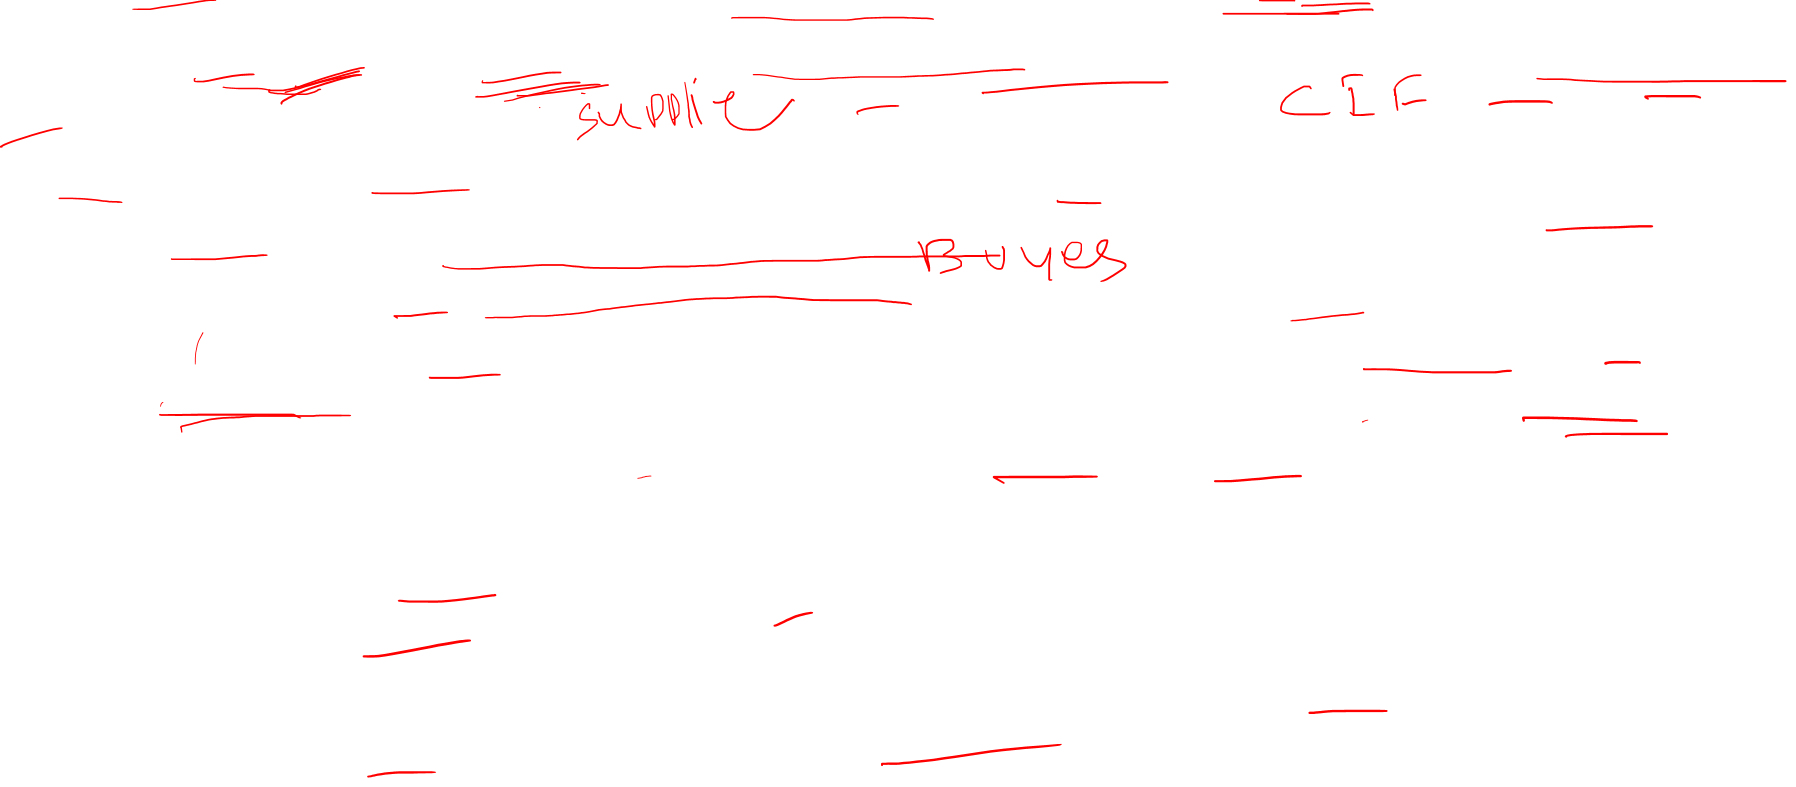 supplie CIF
Buyes